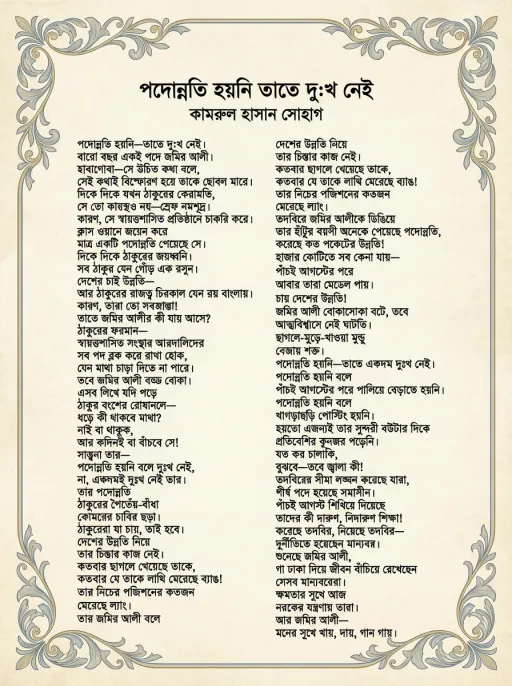 পদোন্নতি হয়নি তাতে দু:খ নেই
কামরুল হাসান সোহাগ
পদোন্নতি হয়নি—তাতে দু:খ নেই।
বারো বছর একই পদে জমির আলী।
হাবাগোবা—সে উচিত কথা বলে,
সেই কথাই বিস্ফোরণ হয়ে তাকে ছোবল মারে।
দিকে দিকে যখন ঠাকুরের কেরামতি,
সে তো কায়স্থও নয়—স্রেফ নমশূদ্র।
কারণ, সে স্বায়ত্তশাসিত প্রতিষ্ঠানে চাকরি করে।
ক্লাস ওয়ানে জয়েন করে
মাত্র একটি পদোন্নতি পেয়েছে সে।
দিকে দিকে ঠাকুরের জয়ধ্বনি।
সব ঠাকুর যেন গোঁড় এক রসুন।
দেশের চাই উন্নতি—
আর ঠাকুরের রাজত্ব চিরকাল যেন রয় বাংলায়।
কারণ, তারা তো সবজান্তা!
তাতে জমির আলীর কী যায় আসে?
ঠাকুরের ফরমান—
স্বায়ত্তশাসিত সংস্থার আরদালিদের
সব পদ ব্লক করে রাখা হোক,
যেন মাথা চাড়া দিতে না পারে।
তবে জমির আলী বড্ড বোকা।
এসব লিখে যদি পড়ে
ঠাকুর বংশের রোষানলে—
ধড়ে কী থাকবে মাথা?
নাই বা থাকুক,
আর কদিনই বা বাঁচবে সে!
সান্ত্বনা তার—
পদোন্নতি হয়নি বলে দুঃখ নেই,
না, একদমই দুঃখ নেই তার।
তার পদোন্নতি
ঠাকুরের পৈতেয়-বাঁধা
কোমরের চাবির ছড়া।
ঠাকুরেরা যা চায়, তাই হবে।
দেশের উন্নতি নিয়ে
তার চিন্তার কাজ নেই।
কতবার ছাগলে খেয়েছে তাকে,
কতবার যে তাকে লাথি মেরেছে ব্যাঙ!
তার নিচের পজিশনের কতজন
মেরেছে ল্যাং।
তার জমির আলী বলে
দেশের উন্নতি নিয়ে
তার চিন্তার কাজ নেই।
কতবার ছাগলে খেয়েছে তাকে,
কতবার যে তাকে লাথি মেরেছে ব্যাঙ!
তার নিচের পজিশনের কতজন
মেরেছে ল্যাং।
তদবিরে জমির আলীকে ডিঙিয়ে
তার হাঁটুর বয়সী অনেকে পেয়েছে পদোন্নতি,
করেছে কত পকেটের উন্নতি!
হাজার কোটিতে সব কেনা যায়—
পাঁচই আগস্টের পরে
আবার তারা মেডেল পায়।
চায় দেশের উন্নতি!
জমির আলী বোকাসোকা বটে, তবে
আত্মবিশ্বাসে নেই ঘাটতি।
ছাগলে-মুড়ে-খাওয়া মুন্ডু
বেজায় শক্ত।
পদোন্নতি হয়নি—তাতে একদম দুঃখ নেই।
পদোন্নতি হয়নি বলে
পাঁচই আগস্টের পরে পালিয়ে বেড়াতে হয়নি।
পদোন্নতি হয়নি বলে
খাগড়াছড়ি পোস্টিং হয়নি।
হয়তো এজন্যই তার সুন্দরী বউটার দিকে
প্রতিবেশির কুনজর পড়েনি।
যত কর চালাকি,
বুঝবে—তবে জ্বালা কী!
তদবিরের সীমা লঙ্ঘন করেছে যারা,
শীর্ষ পদে হয়েছে সমাসীন।
পাঁচই আগস্ট শিখিয়ে দিয়েছে
তাদের কী দারুণ, নিদারুণ শিক্ষা!
করেছে তদবির, নিয়েছে তদবির—
দুর্নীতিতে হয়েছেন মান্যবর।
শুনেছে জমির আলী,
গা ঢাকা দিয়ে জীবন বাঁচিয়ে রেখেছেন
সেসব মান্যবরেরা।
ক্ষমতার সুখে আজ
নরকের যন্ত্রণায় তারা।
আর জমির আলী—
মনের সুখে খায়, দায়, গান গায়।